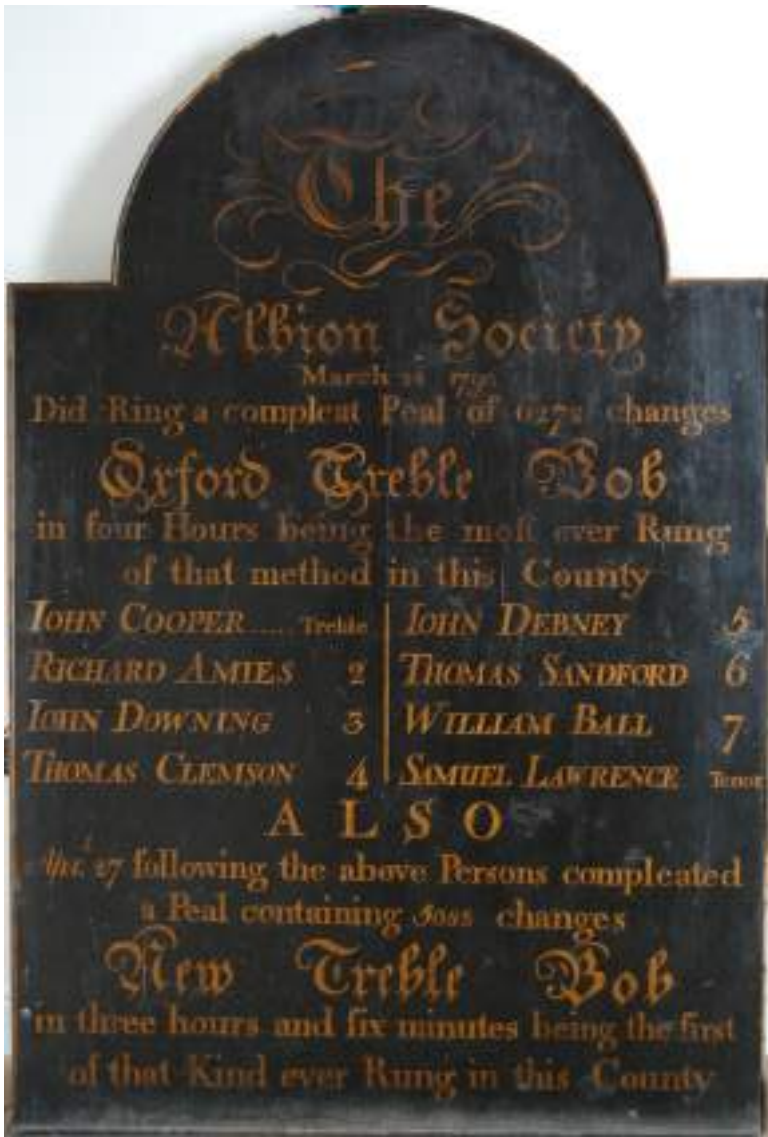 The
Albion Society
March
Did Ring a compleat Peal of changes
Oxford Treble Bob
in four Hours being the moſt ever Rung
of that method in this County
IOHN COOPER..... Treble
RICHARD AMIES 2
IOHN DOWNING 3
THOMAS CLEMSON 4
IOHN DEBNEY 5
THOMAS SANDFORD 6
WILLIAM BALL 7
SAMUEL LAWRENCE Tenor
ALSO
27 following the above Persons compleated
a Peal containing changes
New Treble Bob
in three hours and ſix minutes being the first
of that Kind ever Rung in this County